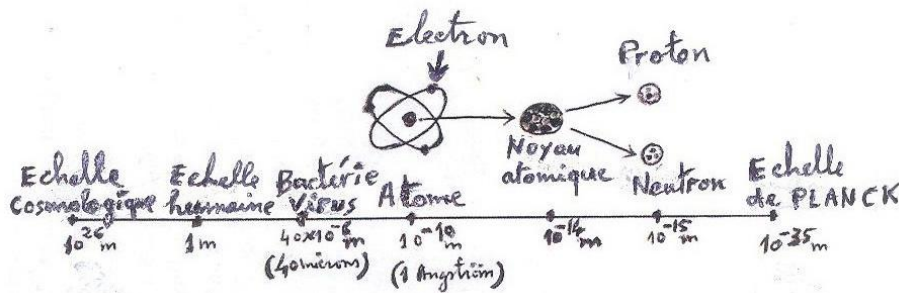 Electron
Proton
Noyau
atomique
Neutron
Echelle
Cosmologique
Echelle
humaine
Bactérie
Virus
Atome
Echelle
de PLANCK
10²⁶ m
1m
40×10⁻⁶ m
(40 microns)
10⁻¹⁰ m
(1 Angström)
10⁻¹⁴ m
10⁻¹⁵ m
10⁻³⁵ m